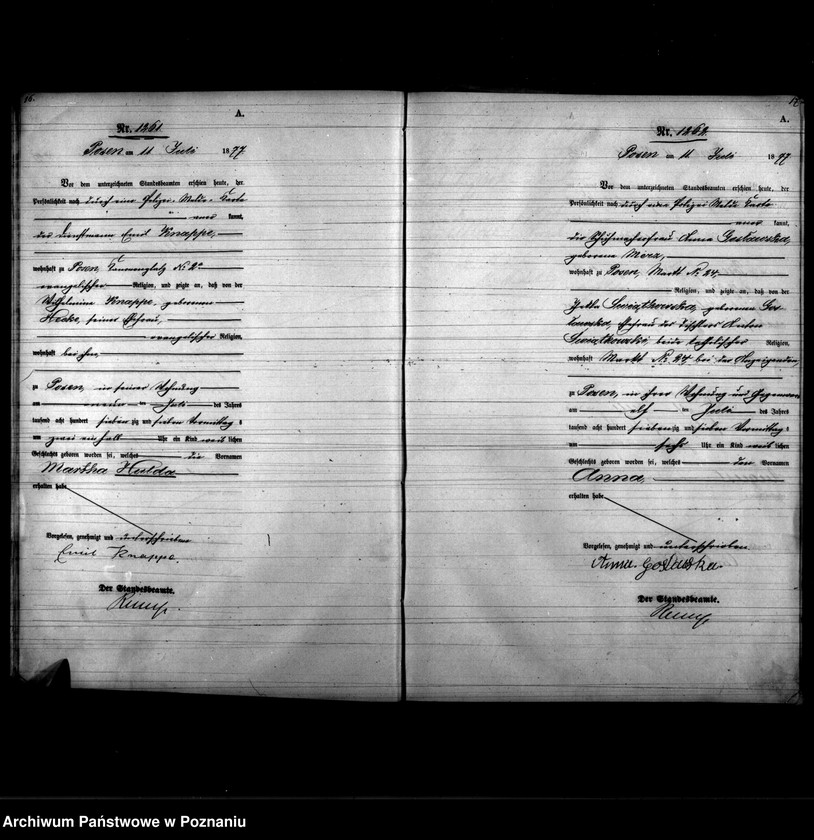 16.
A.
Nr. 1261.
Posen am 11 Juli 1877.
Vor dem unterzeichneten Standesbeamten erschien heute, der
Persönlichkeit nach durch eine Polizei-Melde-Karte
aner kannt,
der Dienstmann Emil Knappe,
wohnhaft zu Posen,
evangelischer Religion, und zeigte an, daß von der
Wilhelmine Knappe, geborenen
seiner Ehefrau,
evangelischer Religion,
wohnhaft bei ihm,
zu Posen, in seiner Wohnung
am neun ten Juli des Jahres
tausend acht hundert siebenzig und sieben Vormittag s
um zwei ein halb Uhr ein Kind weib lichen
Geschlechts geboren worden sei, welches die Vornamen
Martha Hulda
erhalten habe.
Vorgelesen, genehmigt und unterschrieben
Emil Knappe.
Der Standesbeamte.
17.
A.
Nr. 1262.
Posen am 11 Juli 1877.
Vor dem unterzeichneten Standesbeamten erschien heute, der
Persönlichkeit nach durch eine Polizei Melde Karte
aner kannt,
die Schuhmacherfrau Anna
geborene
wohnhaft zu Posen, Markt No 24.
Religion, und zeigte an, daß von der
geborenen
Ehefrau des Tischlers Anton
beide katholischer Religion,
wohnhaft Markt No 24 bei der Anzeigenden,
zu Posen, in ihrer Wohnung und Gegenwart
am elf ten Juli des Jahres
tausend acht hundert siebenzig und sieben Vormittag s
um sechs Uhr ein Kind weib lichen
Geschlechts geboren worden sei, welches den Vornamen
Anna,
erhalten habe.
Vorgelesen, genehmigt und unterschrieben
Anna
Der Standesbeamte.
Archiwum Państwowe w Poznaniu